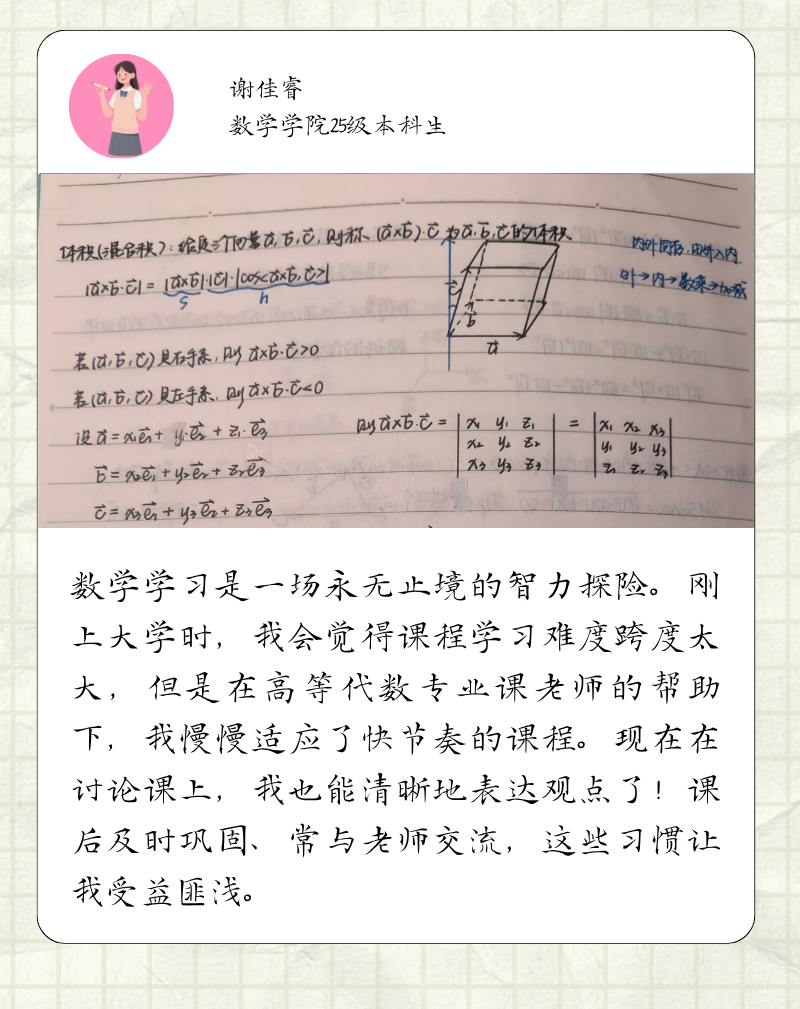 谢佳睿
数学学院25级本科生
体积(混合积):给定三个向量a⃗,b⃗,c⃗,则称(a⃗×b⃗)·c⃗为a⃗,b⃗,c⃗的体积
|a⃗×b⃗·c⃗| = |a⃗×b⃗|·|c⃗|·|cos<a⃗×b⃗,c⃗>|
S h
c⃗
b⃗
a⃗
外→内→数乘→加减
若(a⃗,b⃗,c⃗)是右手系,则a⃗×b⃗·c⃗>0
若(a⃗,b⃗,c⃗)是左手系,则a⃗×b⃗·c⃗<0
设a⃗=x₁e₁⃗+y₁·e₂⃗+z₁·e₃⃗
b⃗=x₂e₁⃗+y₂e₂⃗+z₂e₃⃗
c⃗=x₃e₁⃗+y₃e₂⃗+z₃e₃⃗
则a⃗×b⃗·c⃗ = | x₁ y₁ z₁ | = | x₁ x₂ x₃ |
| x₂ y₂ z₂ | | y₁ y₂ y₃ |
| x₃ y₃ z₃ | | z₁ z₂ z₃ |
数学学习是一场永无止境的智力探险。刚
上大学时,我会觉得课程学习难度跨度太
大,但是在高等代数专业课老师的帮助
下,我慢慢适应了快节奏的课程。现在在
讨论课上,我也能清晰地表达观点了!课
后及时巩固、常与老师交流,这些习惯让
我受益匪浅。